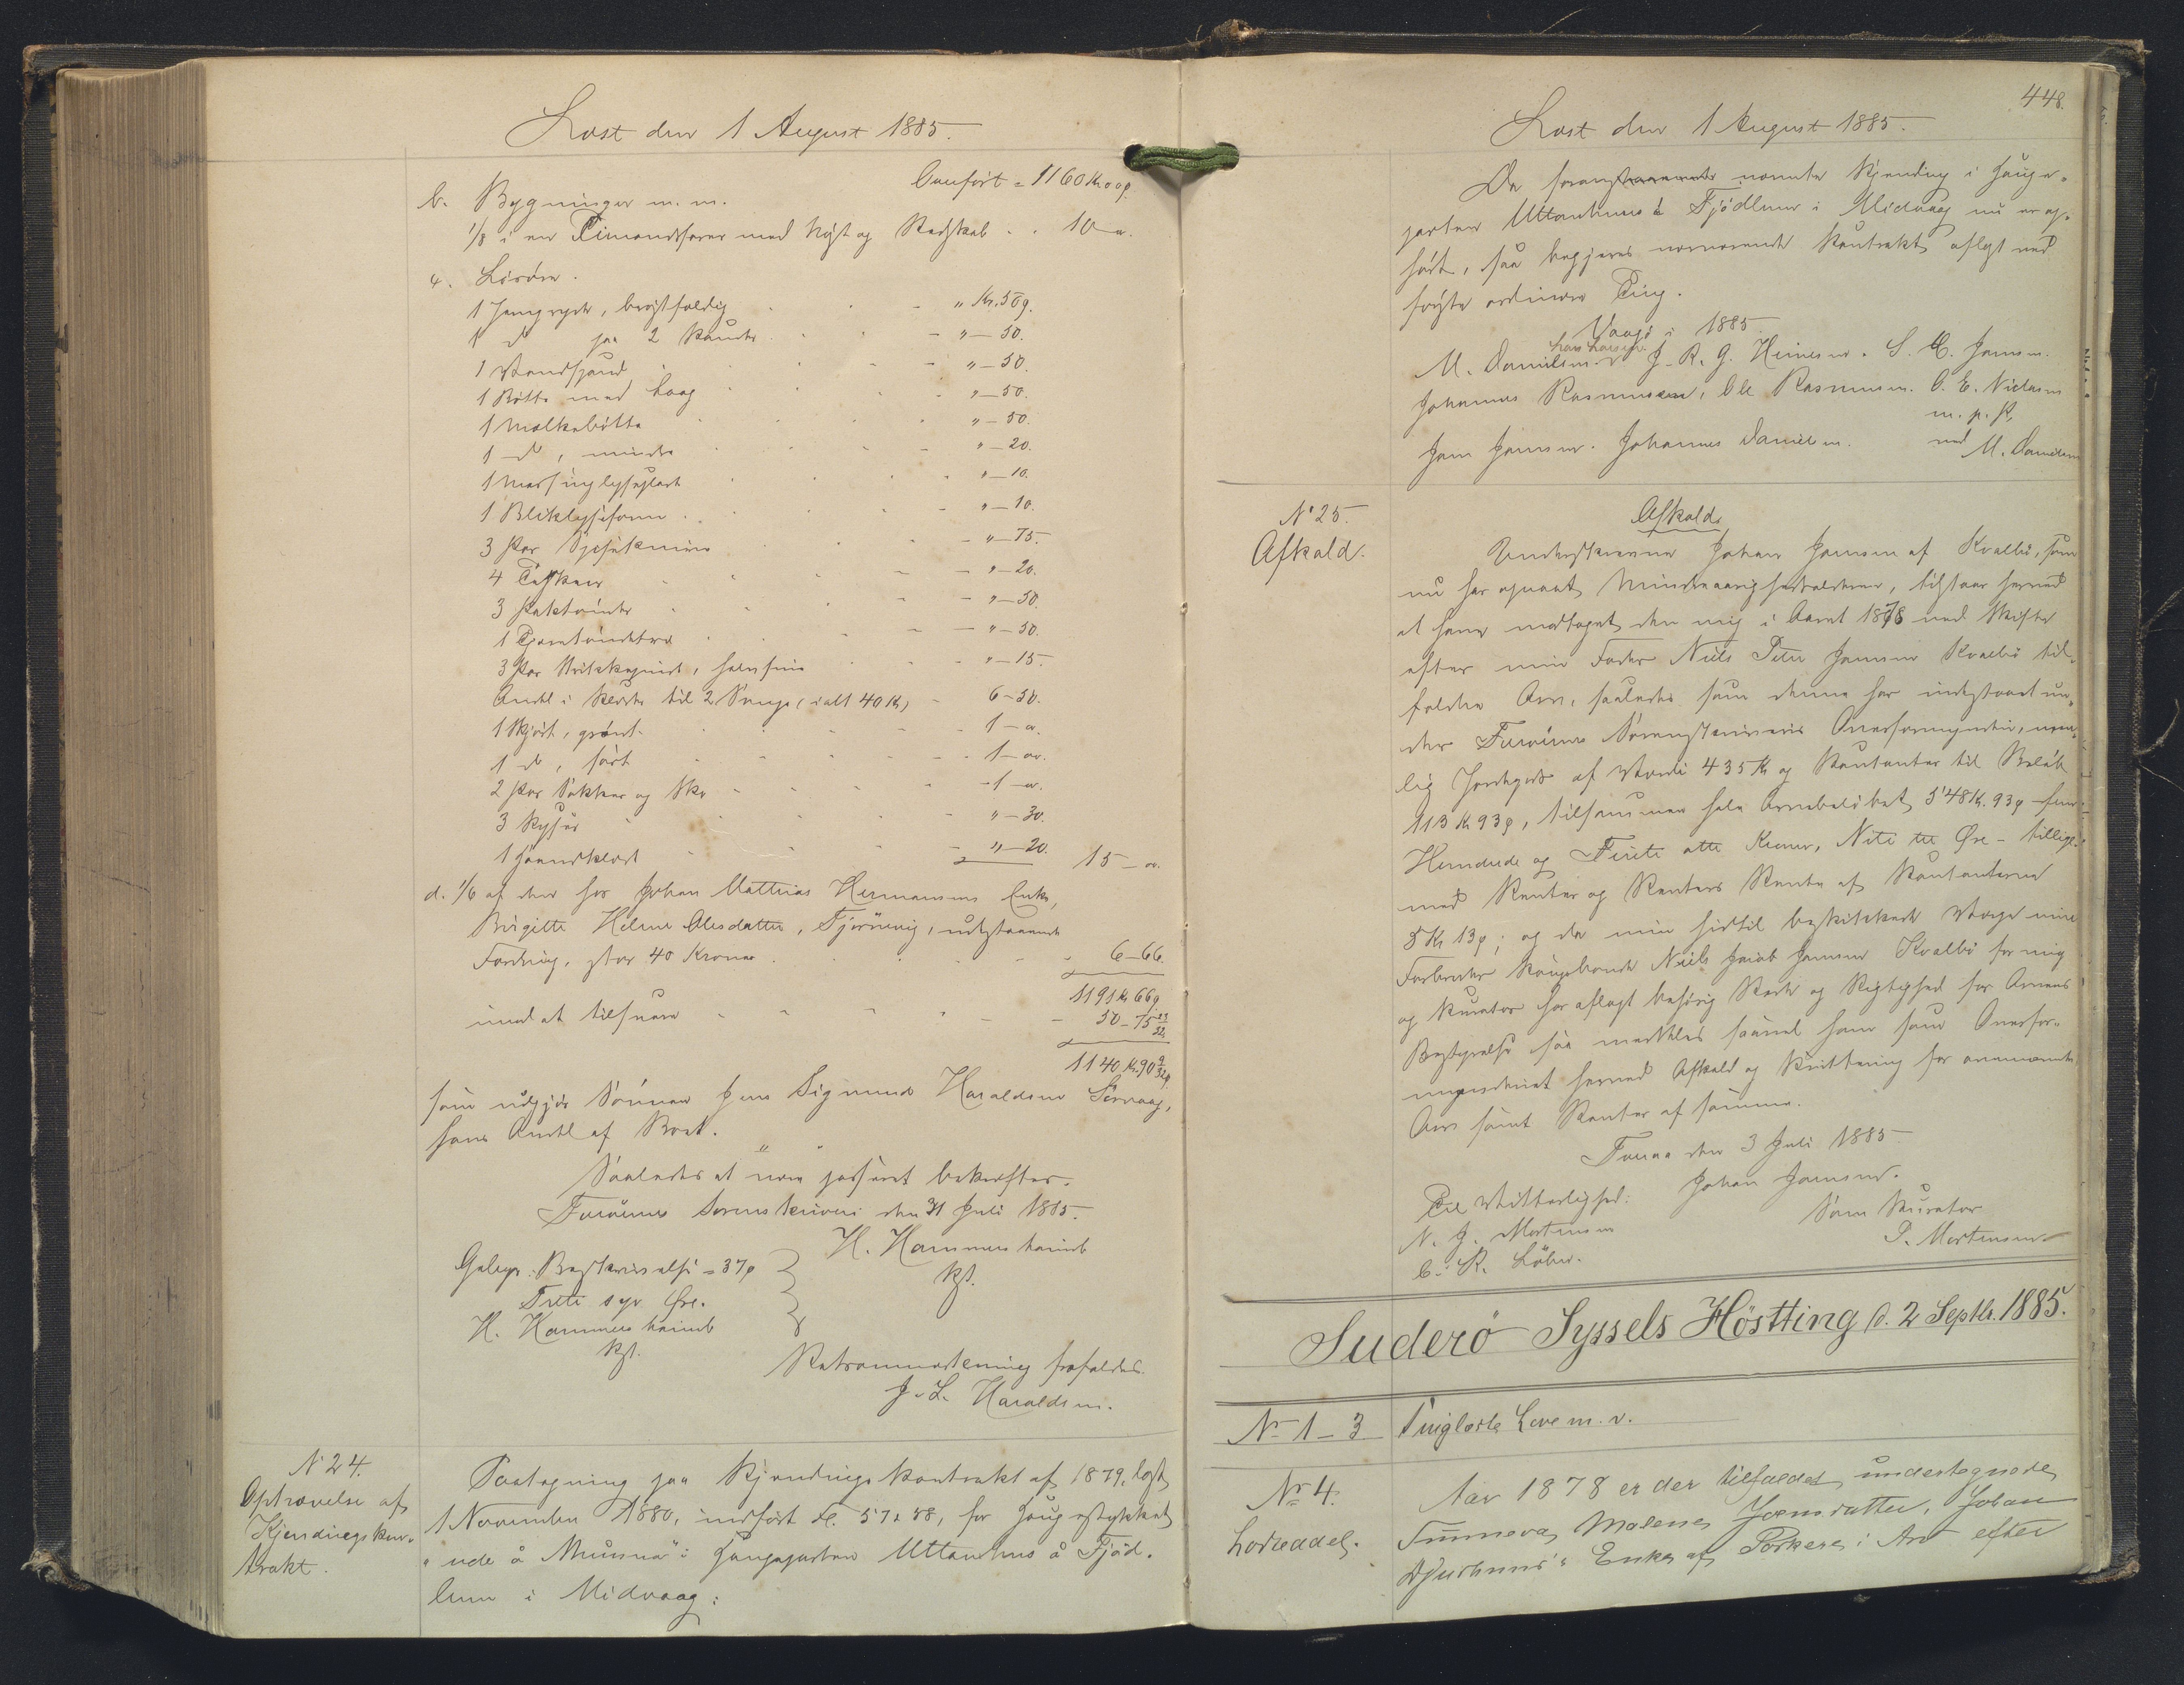 Læst den 1 August 1885.
Overført = 1160 Kr. 00 ø.
b. Bygninger m. m.
1/8 i en Timandsfarer med Nøst og Redskab . . 10 - "
c. Løsøre.
1 Jerngryde, brøstfældig " Kr. 50 ø.
1 do paa 2 Kander " - 50.
1 Vandspand " - 50.
1 Bøtte med Laag " - 50.
1 Mælkebøtte " - 50.
1 do, mindre " - 20.
1 Messinglyseplade " - 10.
1 Bliklyseform " - 10.
3 Par " - 75.
4 Tallerkener " - 20.
3 " - 50.
1 " - 50.
3 Par " - 15.
Andel i Klæder til 2 Senge (ialt 40 Kr) - 6 - 50.
1 Skjørt, grønt 1 - "
1 do, sort 1 - "
2 Par Sokker og Sko 1 - "
3 " - 30.
1 Haandklæde " - 20. 15 - "
d. 1/6 af den hos Johan Mathias Hermansens Enke,
Birgitte Helene Olesdatter, Tjørnevig, udestaaende
Fordring, stor 40 Kroner 6 - 66.
1191 Kr 66 ø.
imod at tilsvare 50 - 75 23/32
1140 Kr. 90 9/32 ø.
som udgjør Sønnen Jens Sigmund Haraldsen Sørvaag,
hans Andel af Boet.
Saaledes at være passeret bekræftes.
Færøernes Sorenskriveri den 31 Juli 1885.
H. Hammershaimb
Kst.
Gebyr: Beskrivelse = 37 ø
Treti syv Øre.
H. Hammershaimb
Kst.
Retsanmærkning frafaldes.
J. S. Haraldsen.
N 24.
Ophævelse af
Kjendingskon-
trakt.
Paategning paa Kjendingskontrakt af 1879, læst
1 November 1880, indført Fol. 57 & 58, for Haugestykket
" ude á Munna" i Haugeparten Uttanhuus á Fjød-
lum i Midvaag:
448.
Læst den 1 August 1885.
Da foranstaaende nævnte Kjending i Hauge-
parten Uttanhuus á Fjødlum i Midvaag nu er op-
hørt, saa begjæres nærværende Kontrakt aflyst ved
første ordinære Ting.
Vaagø i 1885.
M. Danielsen. J. R. G. Heinesen. S. C. Joensen.
Johannes Rasmussen, Ole Rasmussen. O. E. Niclasen
m. p. P.
Joen Joensen. Johannes Danielsen. ved M. Danielsen
No 25.
Afkald.
Afkald.
Undertegnede Johan Joensen af Kvalbø, som
nu har opnaaet Mindreaarighedsalderen, tilstaar herved
at have modtaget den mig i Aaret 1878 ved Skifte
efter min Fader Niels Peter Joensen Kvalbø til-
faldne Arv, saaledes som denne har indestaaet un-
der Færøernes Sorenskriveris Overformynderi, nem-
lig Jordegods af Værdi 435 Kr og Kontanter til Beløb
113 Kr 93 ø, tilsammen hele Arvebeløbet 548 Kr. 93 ø - fem
Hundrede og Firti otte Kroner, Niti tre Øre - tillige
med Renter og Renters Rente af Kontanterne
5 Kr 13 ø; og da min hidtil beskikkede Værge min
Farbroder Kongsbonde Niels Jacob Joensen Kvalbø for mig
og Kurator har aflagt behørig Rede og Rigtighed for Arvens
Bestyrelse saa meddeles saavel ham som Overfor-
mynderiet herved Afkald og Kvittering for ovennævnte
Arv samt Renter af samme.
Tveraa den 3 Juli 1885
Til Vitterlighed: Johan Joensen.
N. J. Mortensen Som Kurator
C. R. Løbner. P. Mortensen
Suderö Syssels Hösting d. 2 Septbr. 1885.
No 1 - 3 Tinglæste Love m. v.
No 4.
Lodseddel.
Aar 1878 er der tilfaldet undertegnede
Sunneva Malene Joensdatter, Johan
Djurhuus's Enke af Porkere i Arv efter